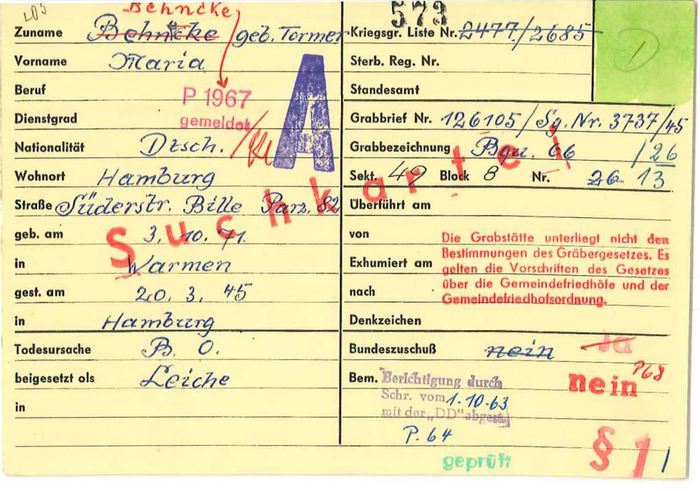 573
Behncke
Zuname Behncke / geb. Tormer
Vorname Maria
Beruf
P 1967
gemeldet
A
Dienstgrad
Nationalität Dtsch.
Wohnort Hamburg
Straße Süderstr. Bille Parz. 82
geb. am 3. 10. 71.
in Warmen
gest. am 20. 3. 45
in Hamburg
Todesursache B. O.
beigesetzt als Leiche
in
Suchkartei
Kriegsgr. Liste Nr. 2477./2685
Sterb. Reg. Nr.
Standesamt
1
Grabbrief Nr. 126105/Sg. Nr. 3737/45
Grabbezeichnung Bqu. 66 /26
Sekt. 49 Block 8 Nr. 26 13
Überführt am
von
Exhumiert am
nach
Die Grabstätte unterliegt nicht den
Bestimmungen des Gräbergesetzes. Es
gelten die Vorschriften des Gesetzes
über die Gemeindefriedhöfe und der
Gemeindefriedhofsordnung.
Denkzeichen
Bundeszuschuß nein Ja
nein P68
Bem. Berichtigung durch
Schr. vom 1.10.63
mit der „DD" abgest.
P. 64
geprüft
§ 1